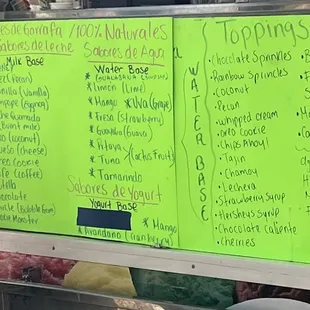 es de Garrafa / 100% Naturales
Sabores de Leche
Milk Base
(Pecan)
Vanilla (Vanilla)
(Eggnog)
(Burnt milk)
oco (coconut)
ueso (cheese)
reo Cookie
afe (coffee)
Chocolate
Cookie Monster
Sabores de Agua
Water Base
* Guanabana (Soursop)
* Limon (Lime)
* Mango * Uva (Grape)
* Fresa (Strawberry)
* Grosella (Guava)
* Pitaya (Cactus Fruit)
* Tuna
* Tamarindo
Sabores de Yogurt
Yogurt Base
* Mango
* Arandano (Cranberry)
WATER BASE
Toppings
• Chocolate Sprinkles
• Rainbow Sprinkles
• Coconut
• Pecan
• Whipped cream
• Oreo Cookie
• Chips Ahoy!
• Tajin
• Chamoy
• Lechera
• Strawberry syrup
• Hersheys Syrup
• Chocolate caliente
• Cherries